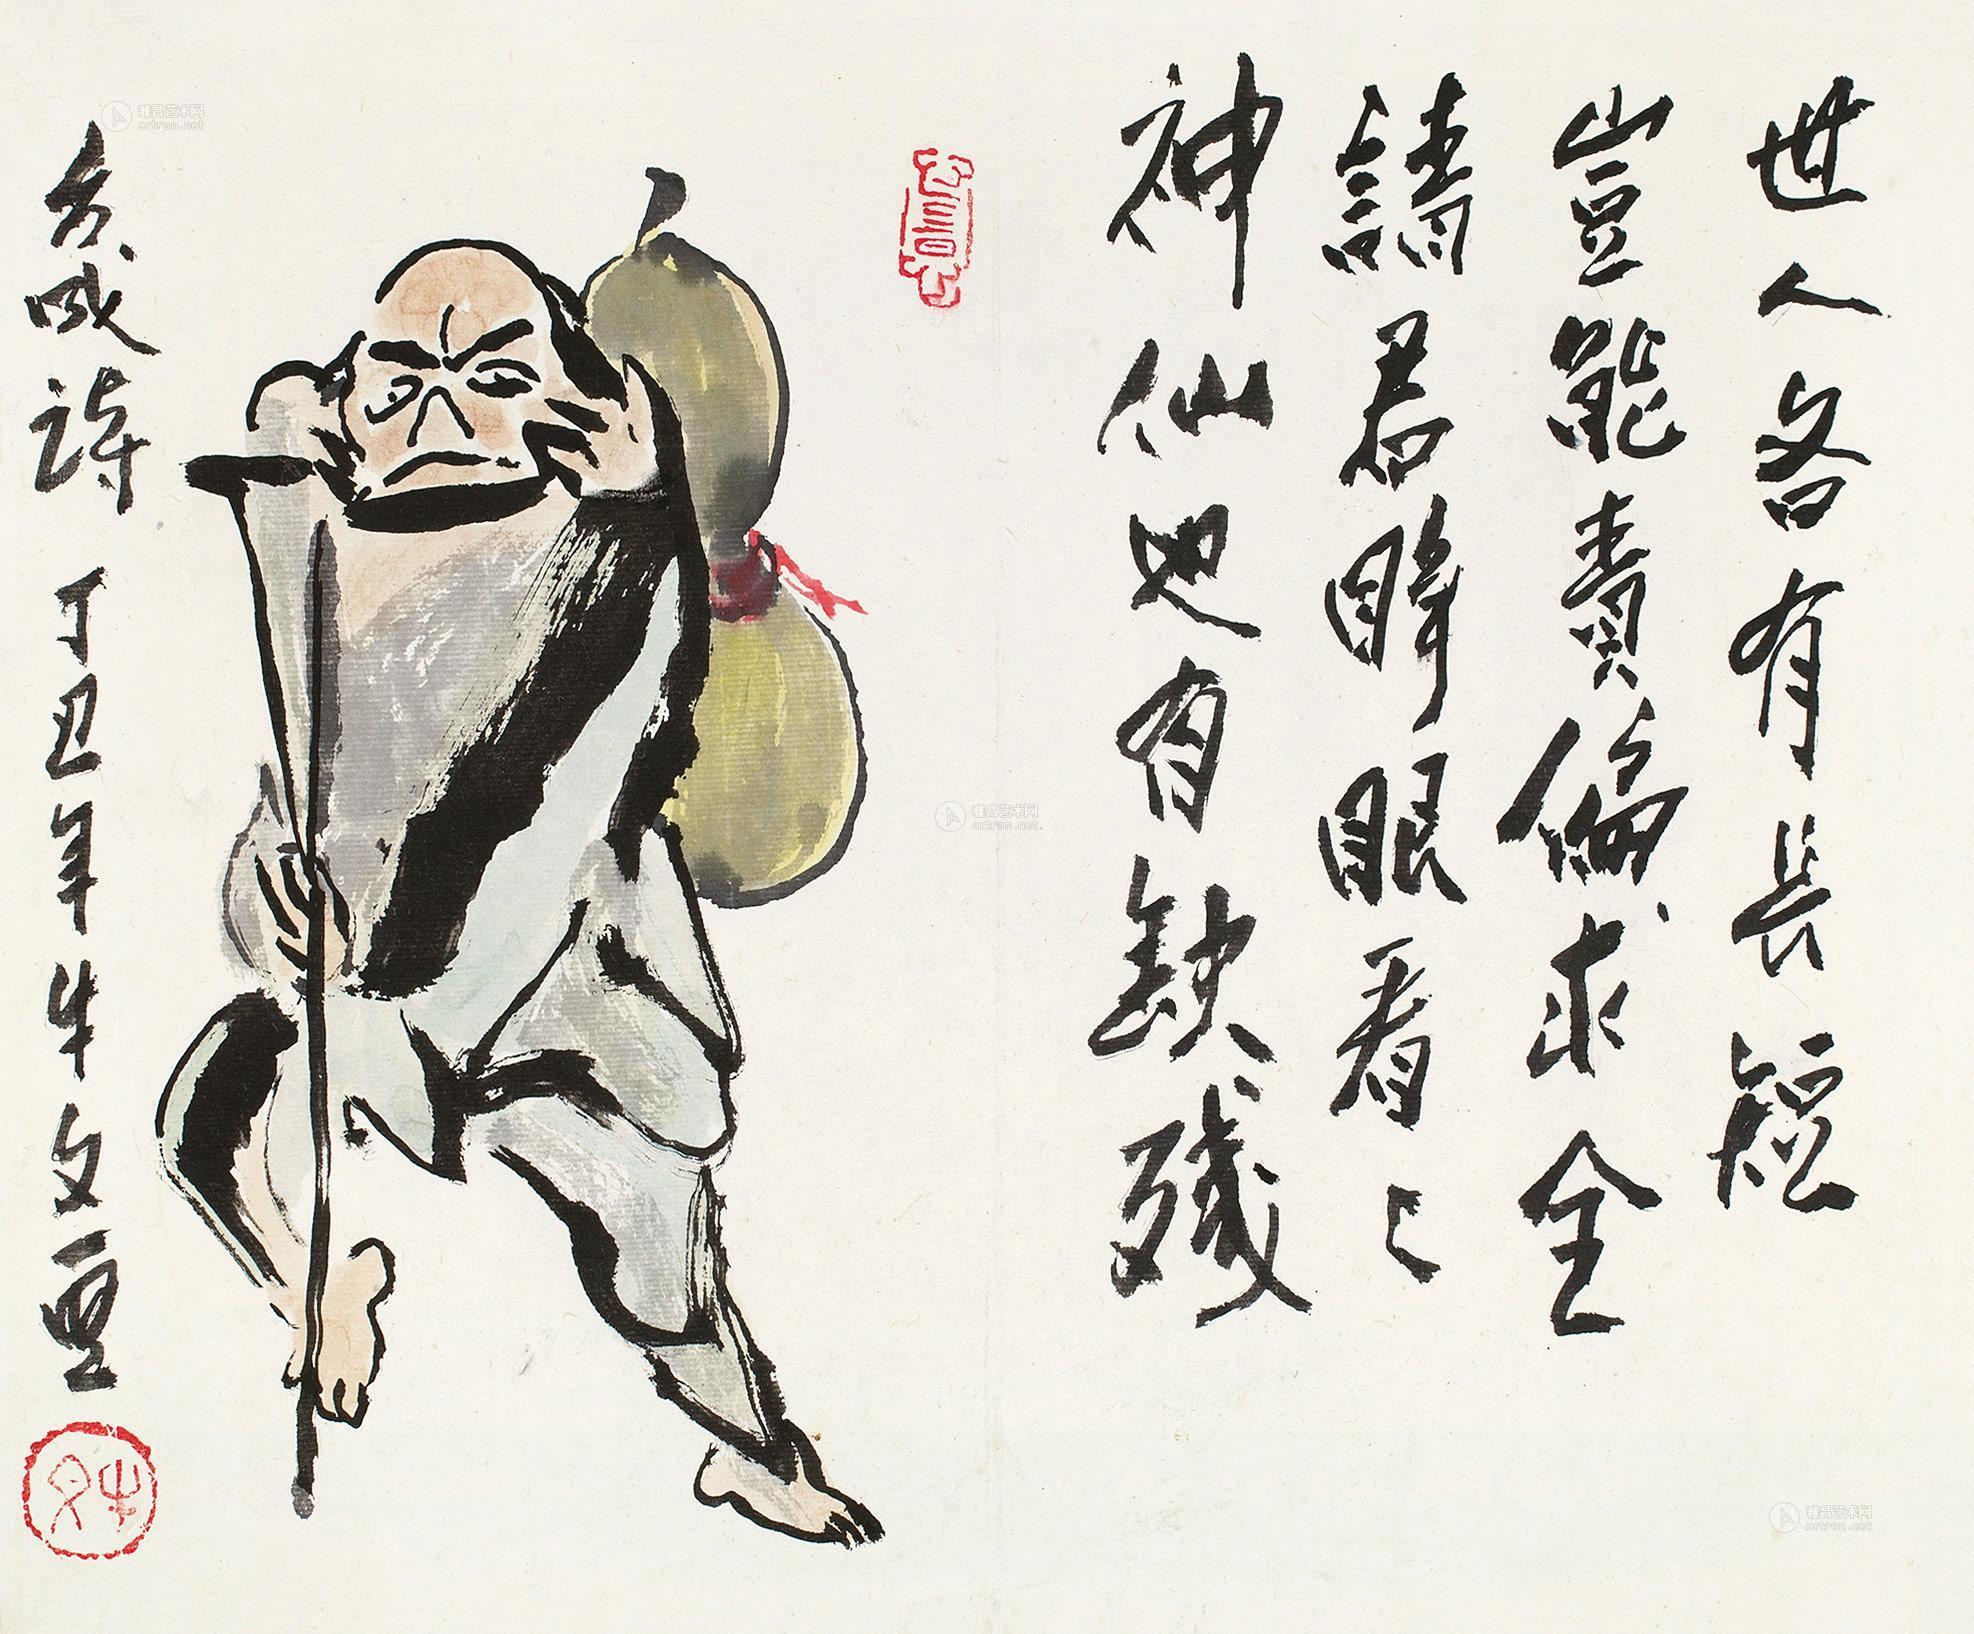 世人各有長短
豈能責偏求全
請君睜眼看〻
神仙也有缺殘
方成诗 丁丑年牛文畫
牛文
雅昌艺术网
artron.net
雅昌艺术网
artron.net
雅昌艺术网
artron.net